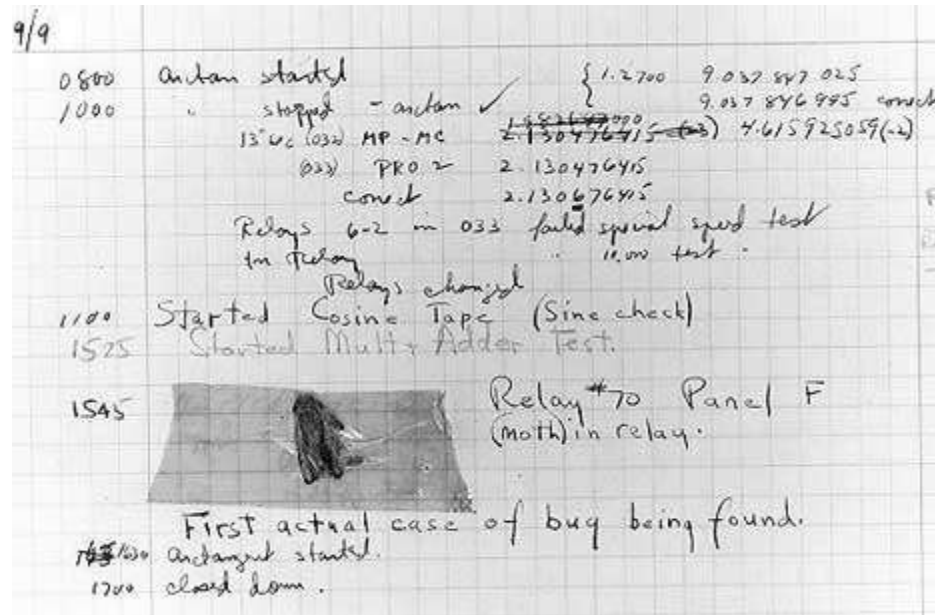 9/9
0800 arctan started { 1.2700 9.037 847 025
1000 " stopped - arctan ✓ 9.037 846 995 correct
13"uc (032) MP-MC 2.130476415 (-3) 4.615925059(-2)
(033) PRO 2 2.130476415
correct 2.130676415
Relays 6-2 in 033 failed special speed test
In Relay " 10,000 test "
Relays changed
1100 Started Cosine Tape (Sine check)
1525 Started Mult+Adder Test.
1545 Relay #70 Panel F
(moth) in relay.
First actual case of bug being found.
1630 arctangent started.
1700 closed down.